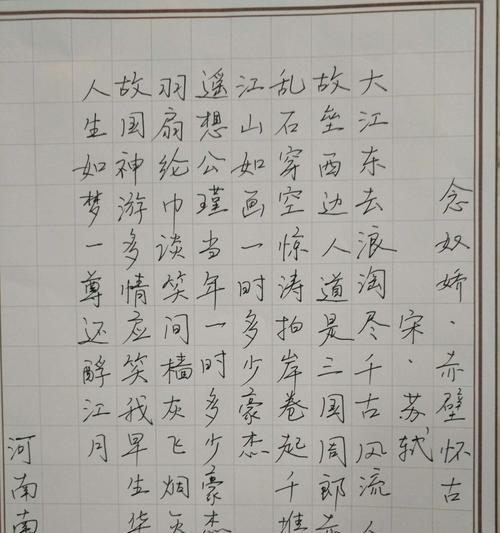 念奴娇·赤壁怀古
宋·苏轼
大江东去浪淘尽千古风流人
故垒西边人道是三国周郎赤
乱石穿空惊涛拍岸卷起千堆
江山如画一时多少豪杰
遥想公瑾当年一时多少豪杰
羽扇纶巾谈笑间樯灰飞烟灭
故国神游多情应笑我早生华
人生如梦一尊还酹江月
河南南